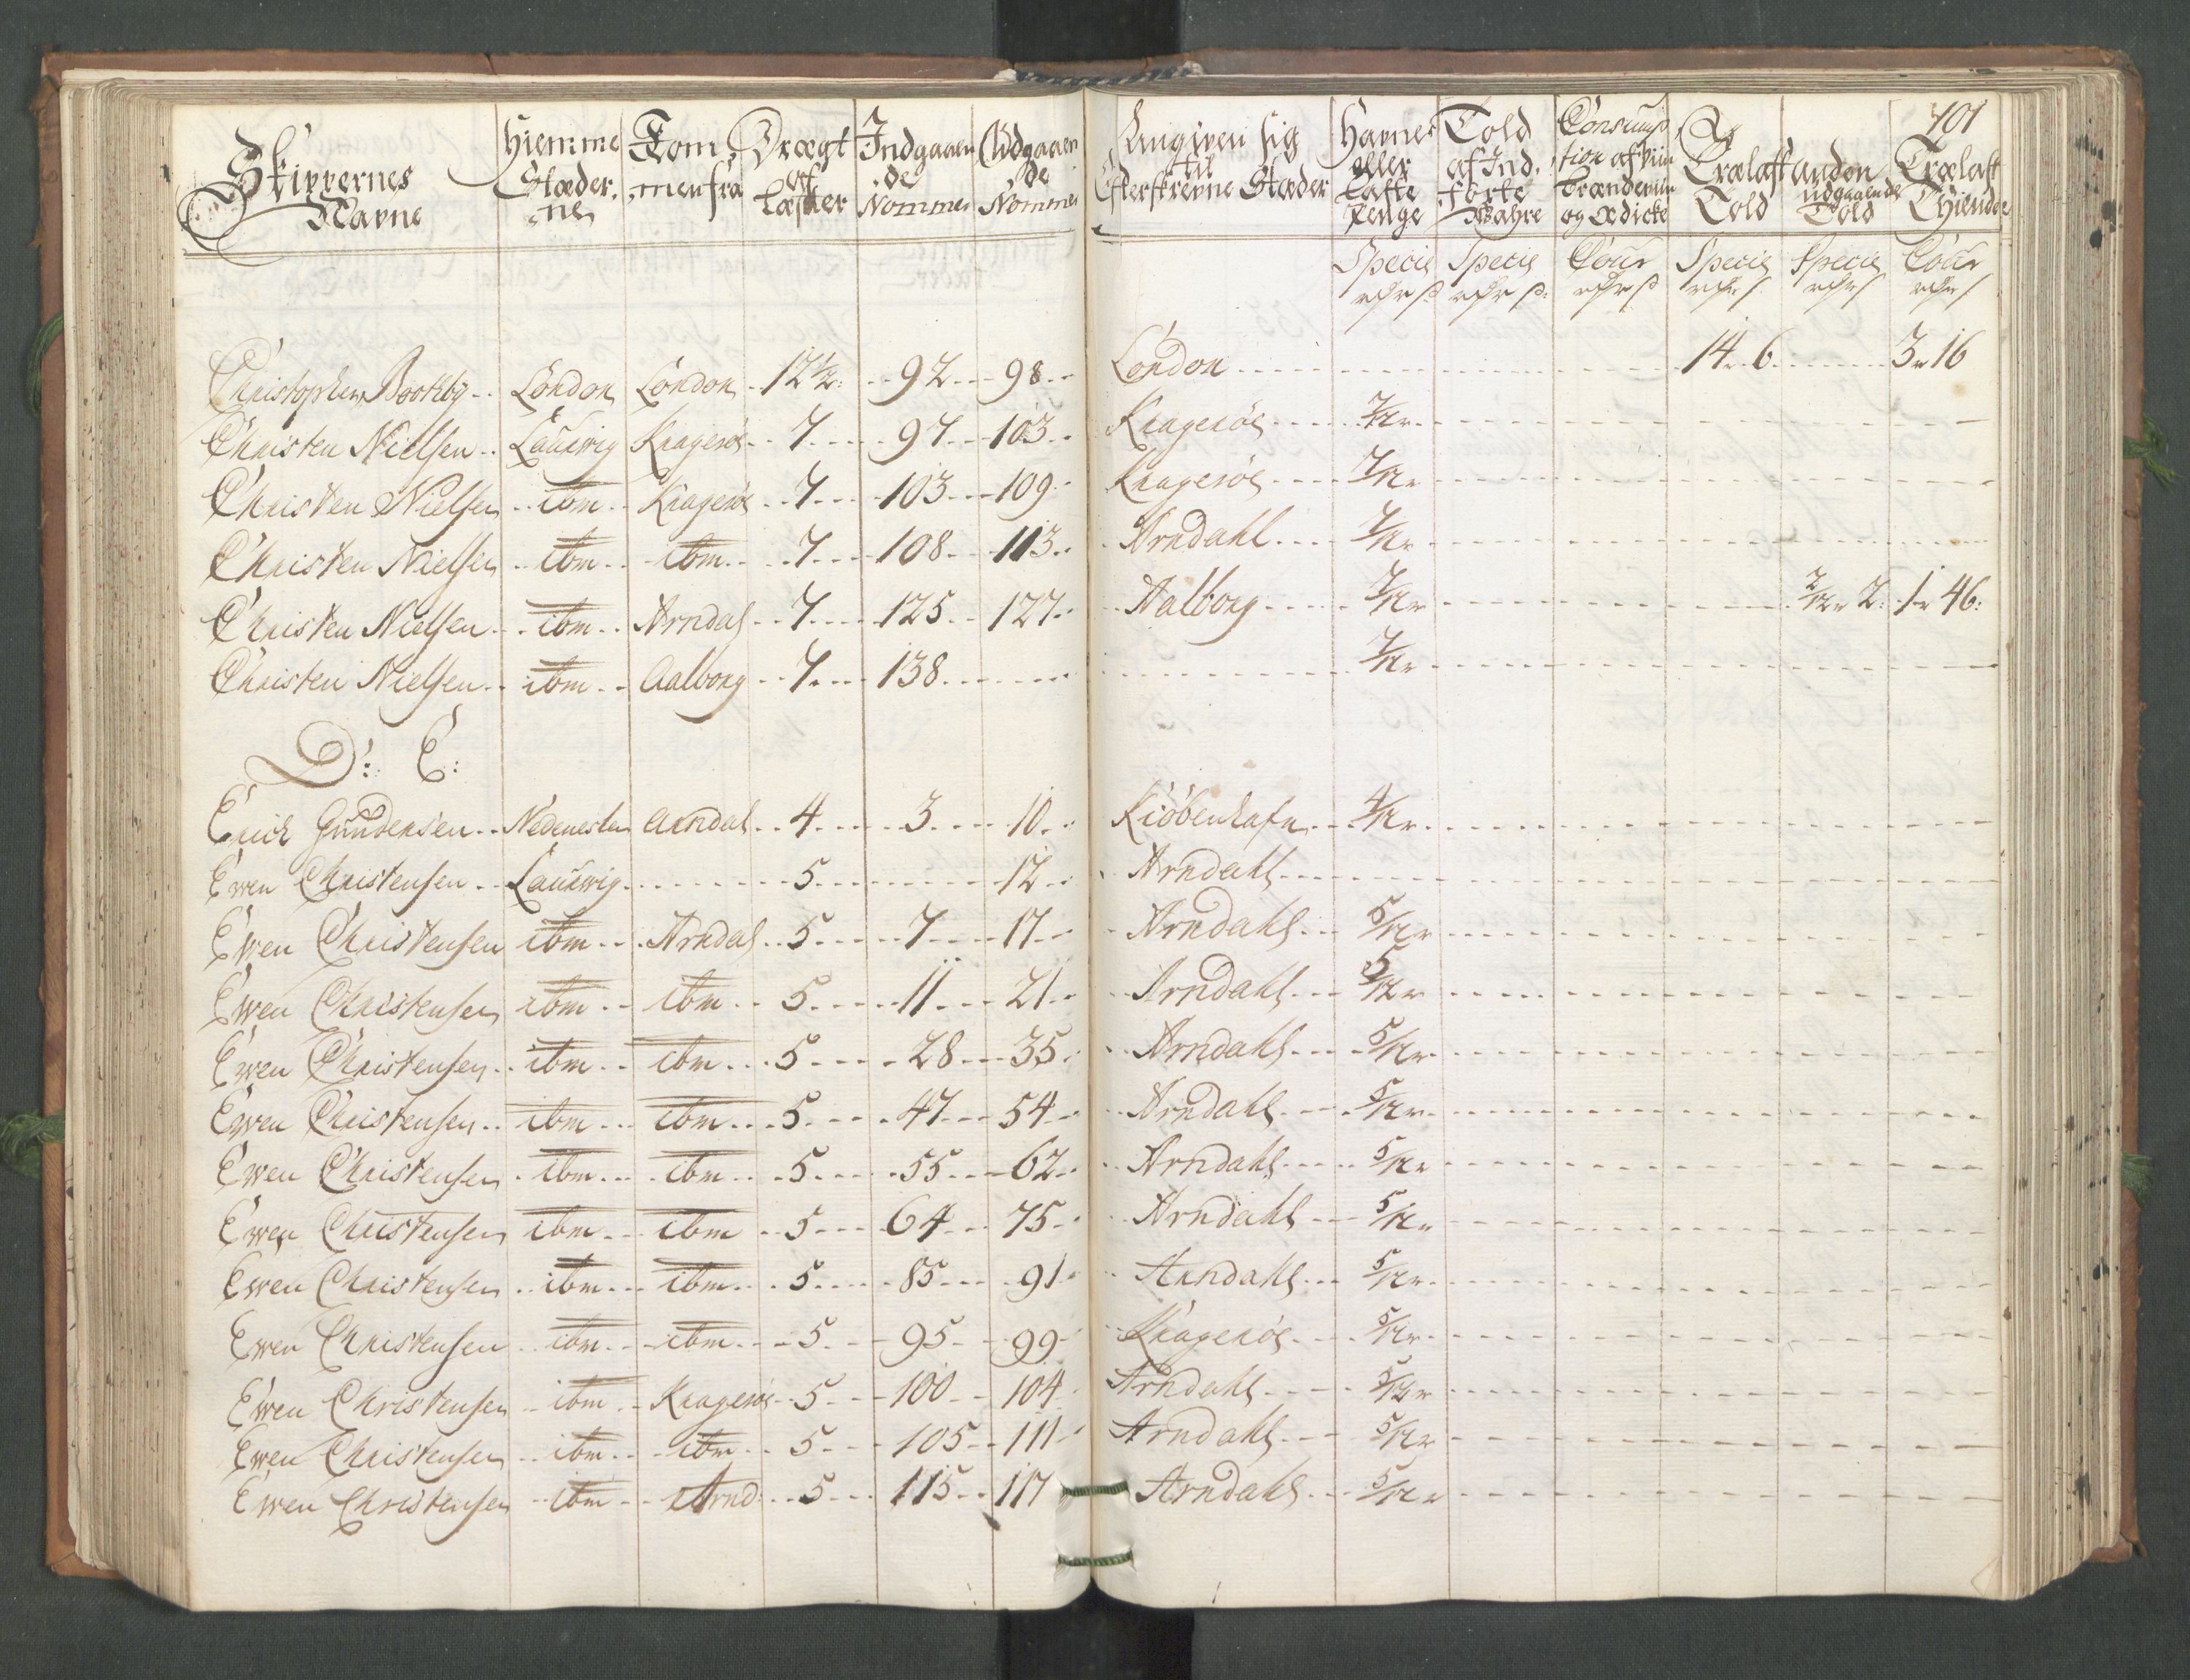 Skippernes Navne | Hiemme Stæder, ne | Kom, men fra | Drægt af Læster | Indgaaen de Nommer | Udgaaen de Nommer | Angiven sig til Efterskrevne Stæder | Havne eller Laste Penge | Told af Ind, førte Wahre | Consump, tion af Viin Brændeviin og Ædicke | Trælast Told | anden udgaaende Told | Trælast Thiende | 101
Specie Specie Cour Specie Specie Cour
Christopher Boothby London London 12 1/2 92 98 London 14 6 3 16
Christen Nielsen Laurwig Kragerøe 7 97 103 Kragerøe 7/12
Christen Nielsen ibm Kragerøe 7 103 109 Kragerøe 7/12
Christen Nielsen ibm ibm 7 108 113 Arndahl 7/12
Christen Nielsen ibm Arndal 7 125 127 Aalborg 7/12 2/12 2 1 46
Christen Nielsen ibm Aalborg 7 138 7/12
D: E:
Erich Gundersen Nedenesten Arndal 4 3 10 Kiöbenhafn 4/12
Ewen Christensen Laurwig 5 12 Arndahl
Ewen Christensen ibm Arndal 5 7 17 Arndahl 5/12
Ewen Christensen ibm ibm 5 11 21 Arndahl 5/12
Ewen Christensen ibm ibm 5 28 35 Arndahl 5/12
Ewen Christensen ibm ibm 5 47 54 Arndahl 5/12
Ewen Christensen ibm ibm 5 55 62 Arndahl 5/12
Ewen Christensen ibm ibm 5 64 75 Arndahl 5/12
Ewen Christensen ibm ibm 5 85 91 Arndahl 5/12
Ewen Christensen ibm ibm 5 95 99 Kragerøe 5/12
Ewen Christensen ibm Kragerøe 5 100 104 Arndahl 5/12
Ewen Christensen ibm ibm 5 105 111 Arndahl 5/12
Ewen Christensen ibm Arnd: 5 115 117 Arndahl 5/12